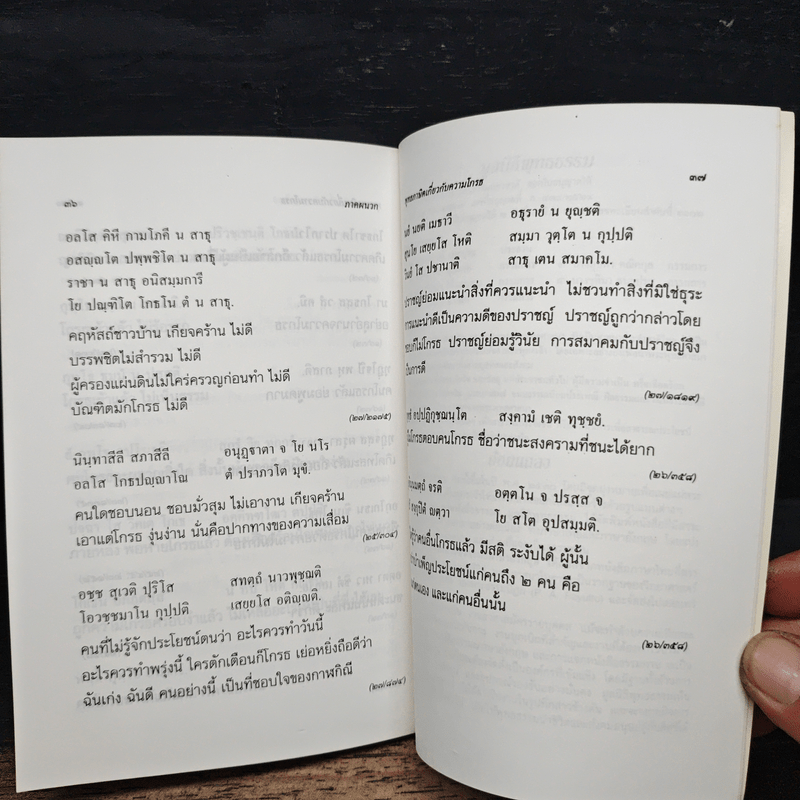 ๓๖ ภาคผนวก
อลโส คิหี กามโภคี น สาธุ
อสญฺญโต ปพฺพชิโต น สาธุ
ราชา น สาธุ อนิสมฺมการี
โย ปณฺฑิโต โกธโน ตํ น สาธุ.
คฤหัสถ์ชาวบ้าน เกียจคร้าน ไม่ดี
บรรพชิตไม่สำรวม ไม่ดี
ผู้ครองแผ่นดินไม่ใคร่ครวญก่อนทำ ไม่ดี
บัณฑิตมักโกรธ ไม่ดี
(๒๗/๒๑๗๕)
นินฺทาสีลี สภาสีลี อนุฏฺฐาตา จ โย นโร
อลโส โกธปญฺญาโณ ตํ ปราภวโต มุขํ.
คนใดชอบนอน ชอบมั่วสุม ไม่เอางาน เกียจคร้าน
เอาแต่โกรธ งุ่นง่าน นั่นคือปากทางของความเสื่อม
(๒๕/๓๐๔)
อชฺช สุเวติ ปุริโส สทตฺถํ นาวพุชฺฌติ
โอวชฺชมาโน กุปฺปติ เสยฺยโส อติญฺญติ.
คนที่ไม่รู้จักประโยชน์ตนว่า อะไรควรทำวันนี้
อะไรควรทำพรุ่งนี้ ใครตักเตือนก็โกรธ เย่อหยิ่งถือดีว่า
ฉันเก่ง ฉันดี คนอย่างนี้ เป็นที่ชอบใจของกาฬกิณี
(๒๗/๘๗๔)
พุทธภาษิตเกี่ยวกับความโกรธ ๓๗
นยติ เมธาวี อธุรายํ น ยุญฺชติ
เสยฺยโส โหติ สมฺมา วุตฺโต น กุปฺปติ
โส ปชานาติ สาธุ เตน สมาคโม.
ปราชญ์ย่อมแนะนำสิ่งที่ควรแนะนำ ไม่ชวนทำสิ่งที่มิใช่ธุระ
การแนะนำดีเป็นความดีของปราชญ์ ปราชญ์ถูกว่ากล่าวโดย
ชอบก็ไม่โกรธ ปราชญ์ย่อมรู้วินัย การสมาคมกับปราชญ์จึง
เป็นการดี
(๒๗/๑๘๑๙)
อปฺปฏิกุชฺฌนฺโต สงฺคามํ เชติ ทุชฺชยํ.
ไม่โกรธตอบคนโกรธ ชื่อว่าชนะสงครามที่ชนะได้ยาก
(๒๖/๓๕๘)
จรติ อตฺตโน จ ปรสฺส จ
ญตฺวา โย สโต อุปสมฺมติ.
รู้ว่าคนอื่นโกรธแล้ว มีสติ ระงับได้ ผู้นั้น
บำเพ็ญประโยชน์แก่คนถึง ๒ คน คือ
และแก่คนอื่นนั้น
(๒๖/๓๕๘)